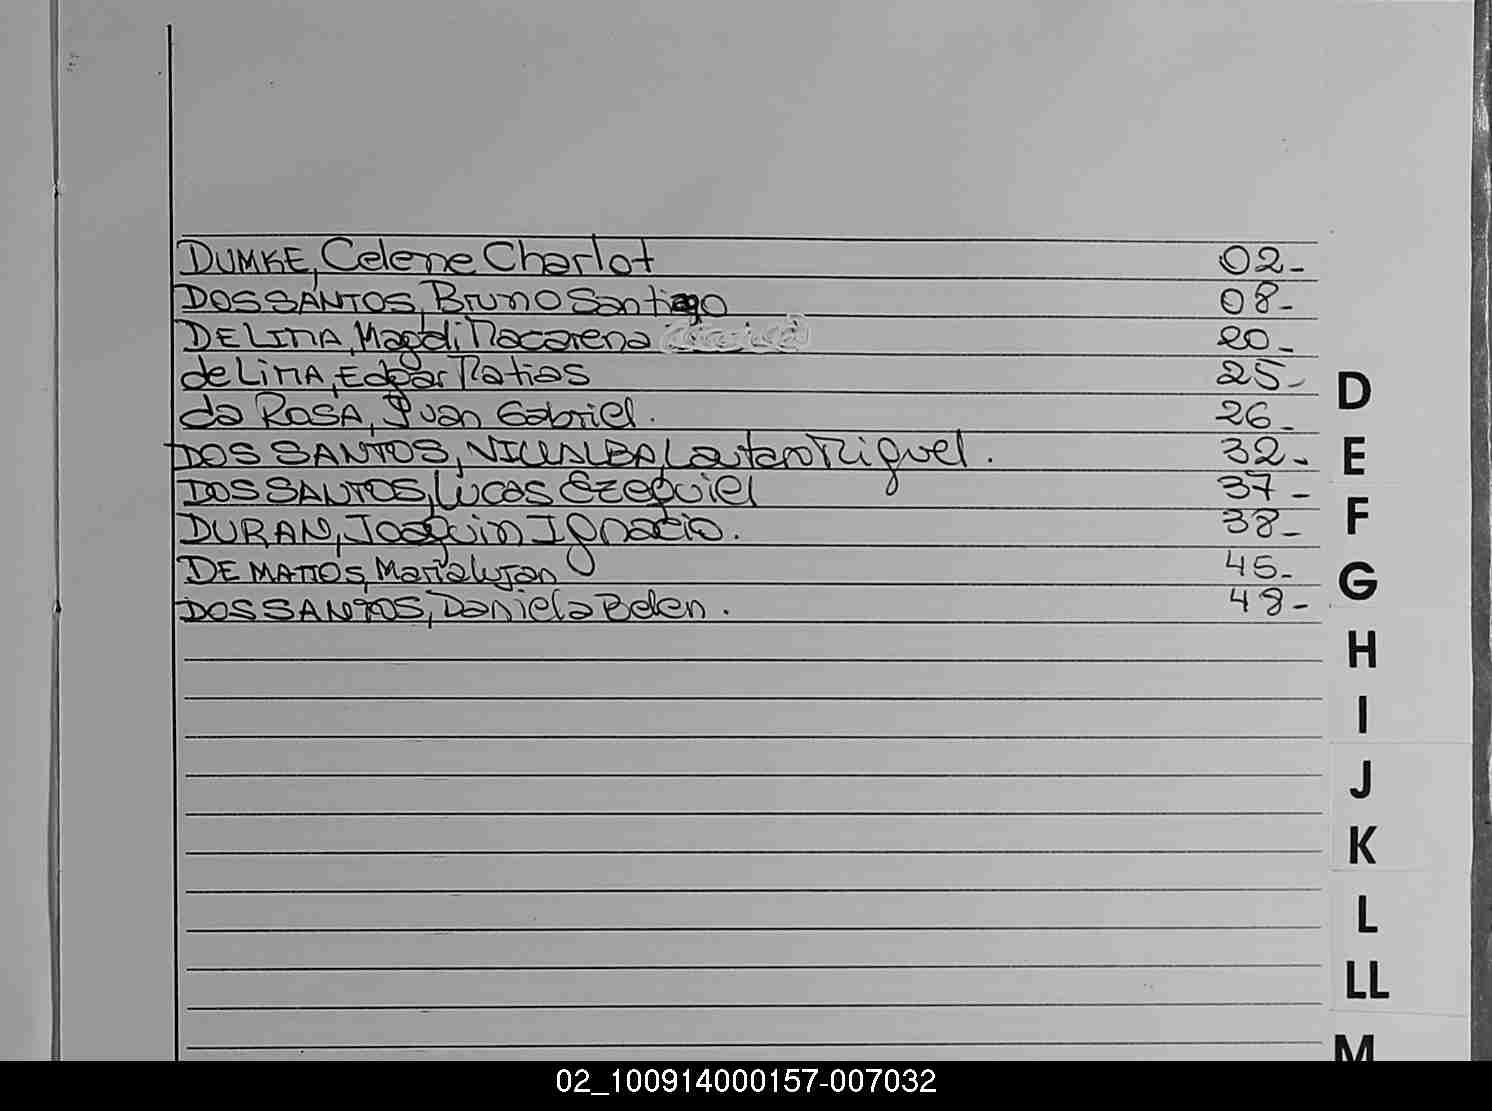 DUMKE, Celene Charlot 02-
DOS SANTOS, Bruno Santiago 08-
DE LIMA, Magdi Macarena 20-
de LIMA, Edgar Matias 25-
da ROSA, Juan Gabriel. 26-
DOS SANTOS, VILLALBA, Lautaro Miguel. 32-
DOS SANTOS, Lucas Ezequiel 37-
DURAN, Joaquin Ignacio. 38-
DE MATTOS, Maria Lujan 45-
DOS SANTOS, Daniela Belen. 48-
D
E
F
G
H
I
J
K
L
LL
M
02_100914000157-007032